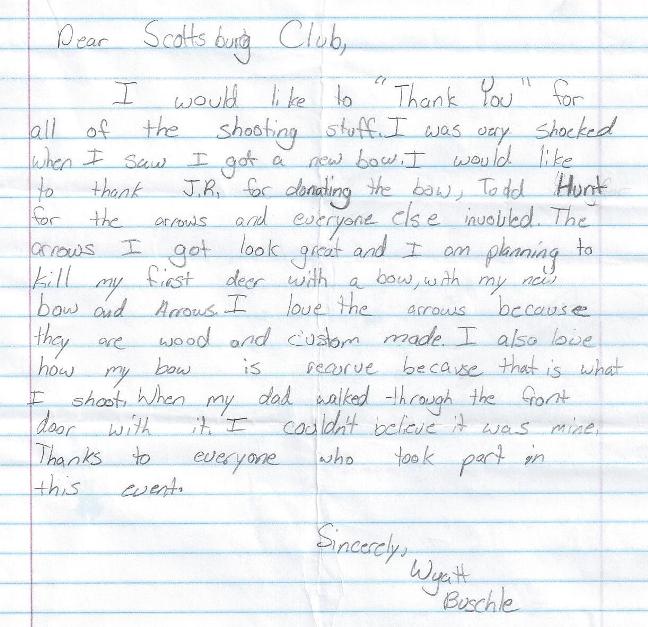 Dear Scottsburg Club,
I would like to "Thank You" for
all of the shooting stuff. I was very shocked
when I saw I got a new bow. I would like
to thank J.R. for donating the bow, Todd Hunt
for the arrows and everyone else involbed. The
arrows I got look great and I am planning to
kill my first deer with a bow, with my new
bow and Arrows. I love the arrows because
they are wood and custom made. I also love
how my bow is recurve because that is what
I shoot. When my dad walked through the front
door with it, I couldn't believe it was mine.
Thanks to everyone who took part in
this event.
Sincerely,
Wyatt
Buschle